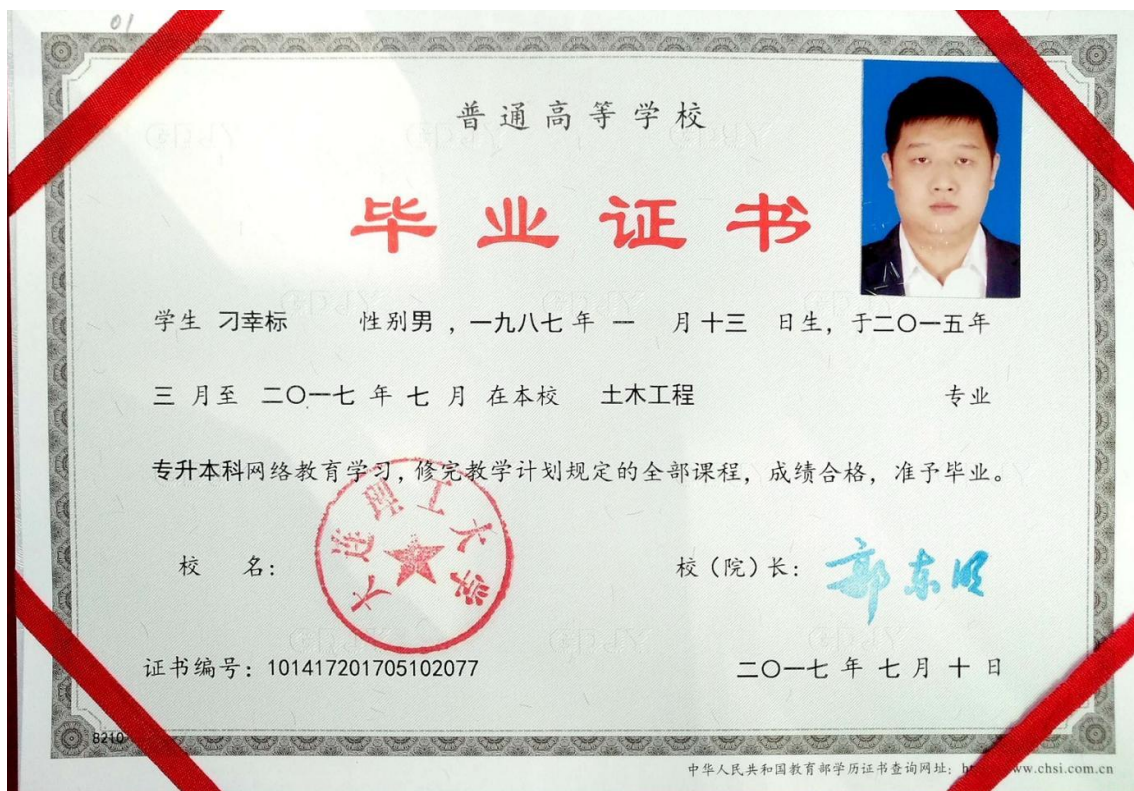 01
普通高等学校
毕业证书
学生 刁幸标 性别男，一九八七年 一 月十三 日生，于二〇一五年
三 月至 二〇一七 年 七 月 在本校 土木工程 专业
专升本科网络教育学习，修完教学计划规定的全部课程，成绩合格，准予毕业。
大连理工大学
校 名：
校（院）长： 郭东明
证书编号：101417201705102077
二〇一七 年 七 月 十 日
8210
中华人民共和国教育部学历证书查询网址：ww.chsi.com.cn